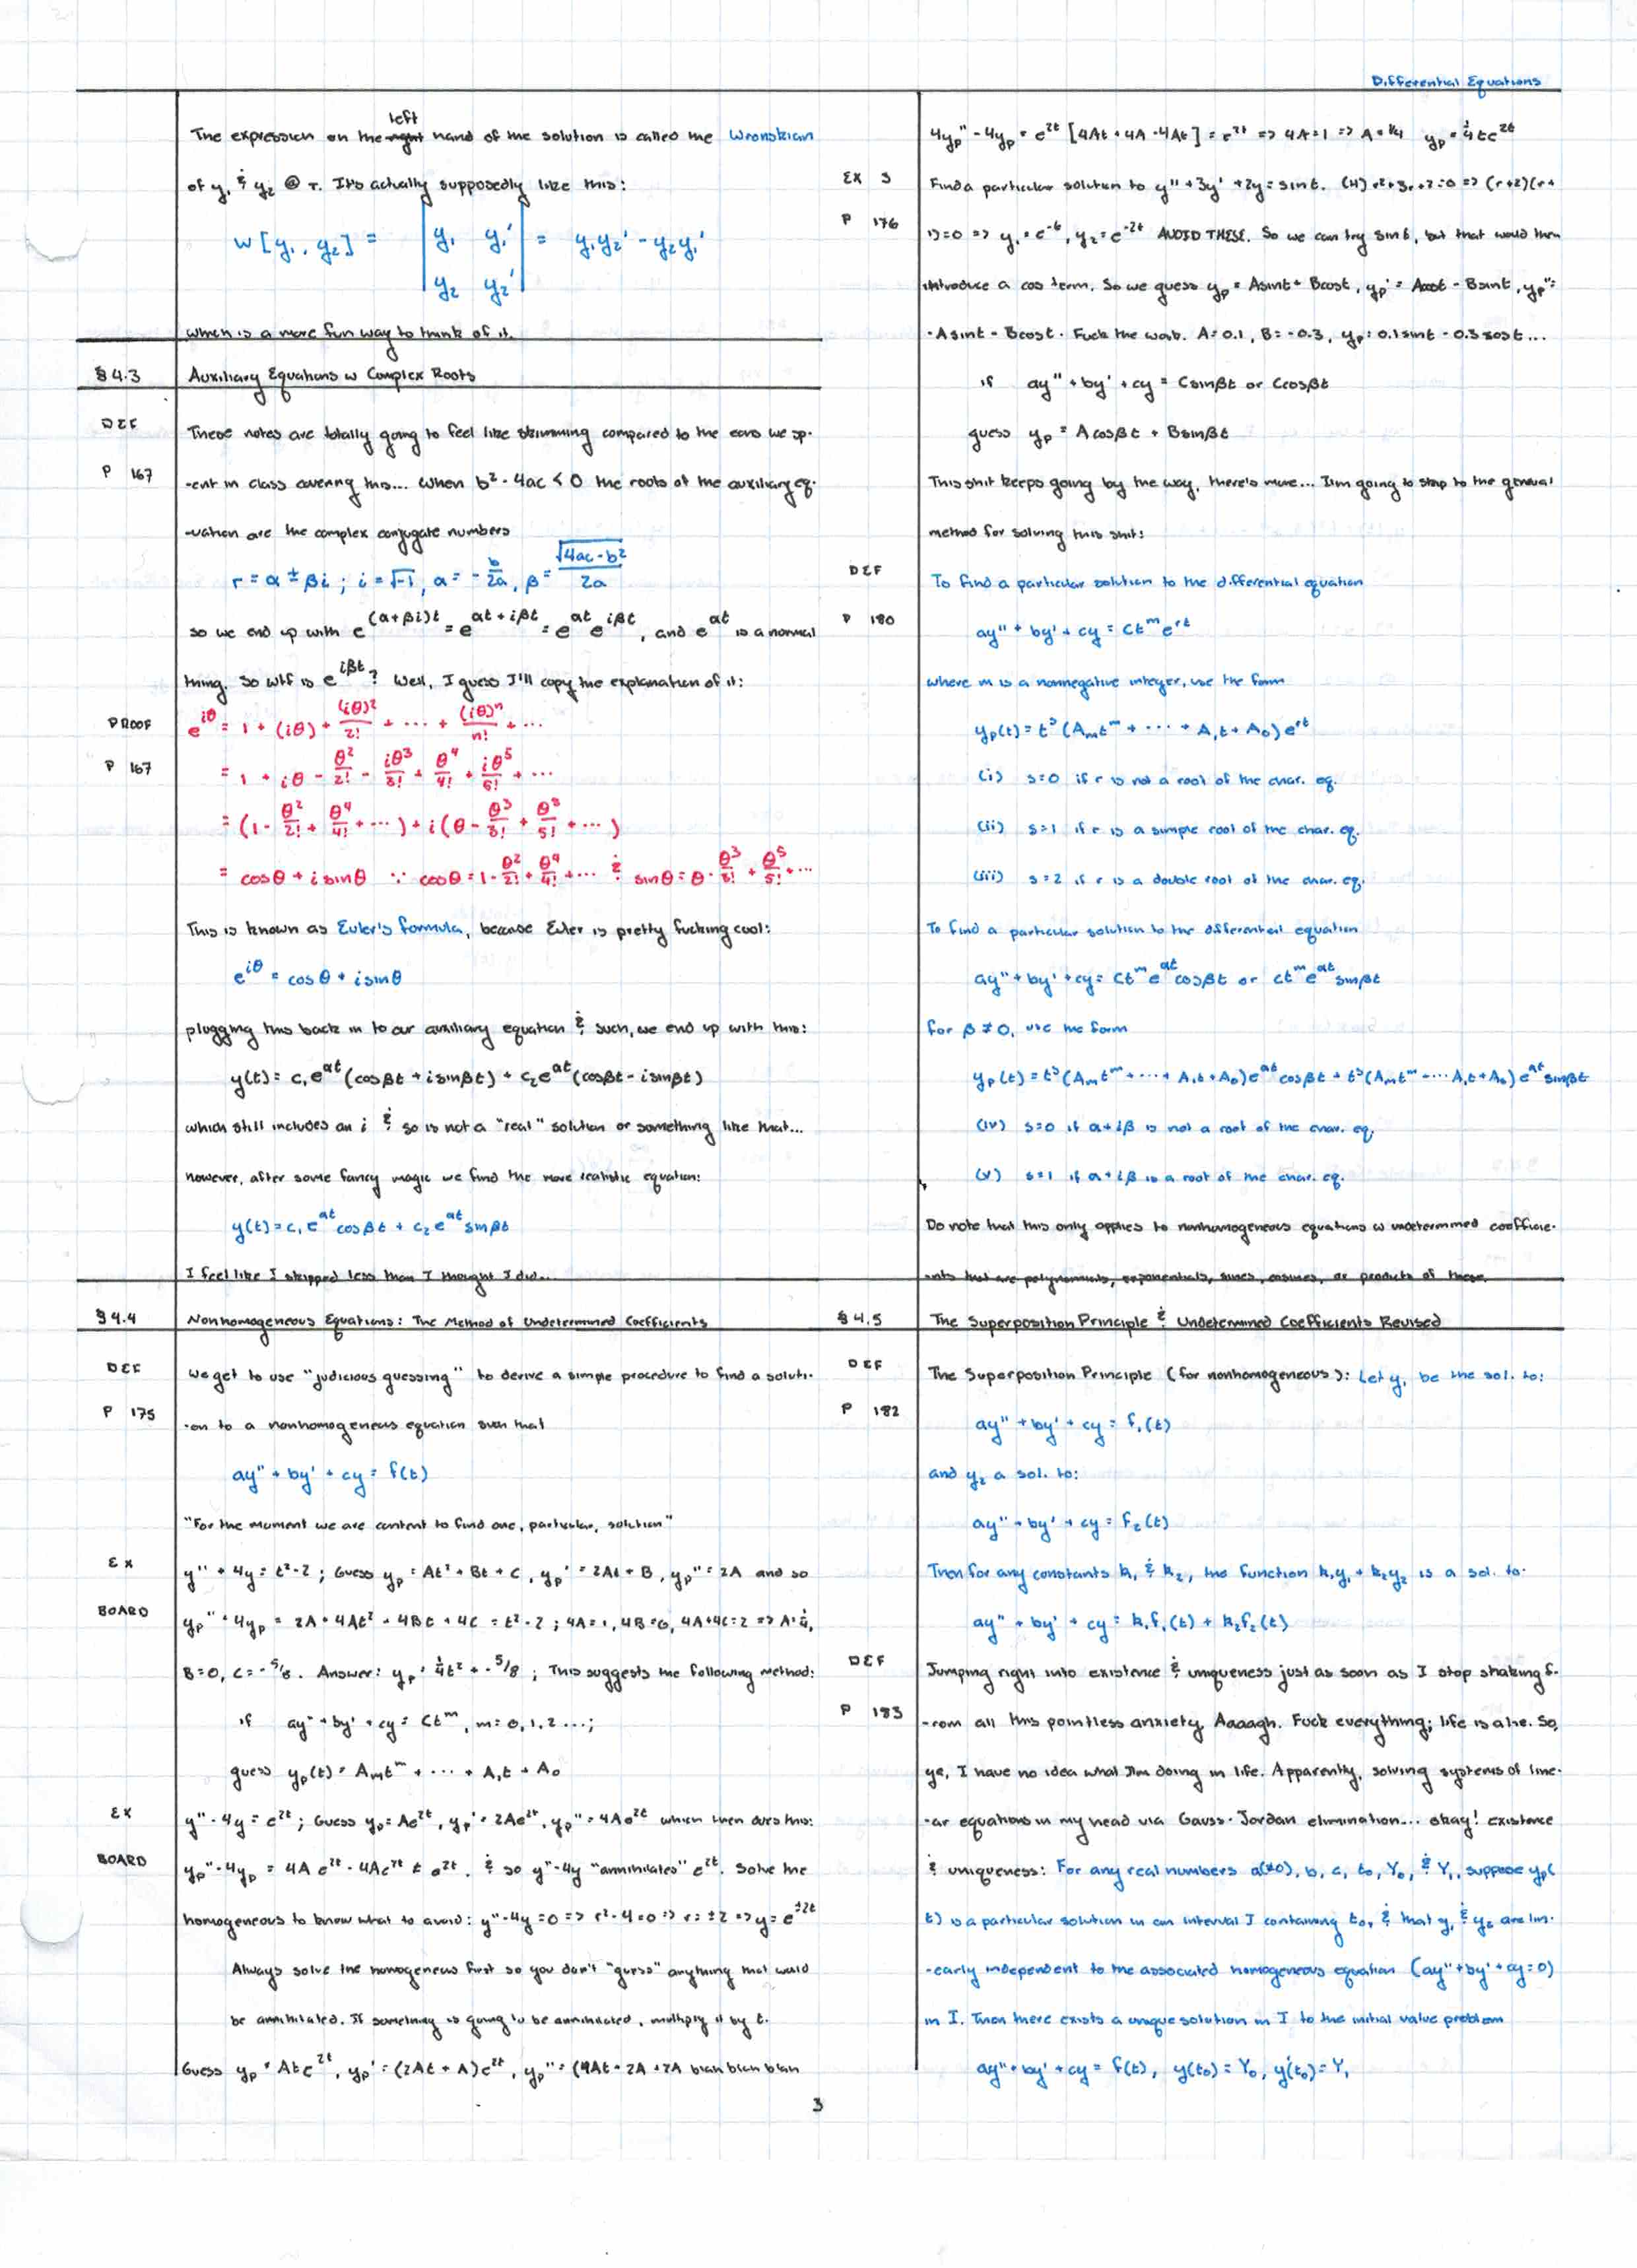 Differential Equations
left
The expression on the right hand of the solution is called the Wronskian
of y₁ & y₂ @ τ. It's actually supposedly like this:
W[y₁, y₂] = | y₁ y₁' ; y₂ y₂' | = y₁y₂' - y₂y₁'
which is a more fun way to think of it.
§4.3 Auxiliary Equations w Complex Roots
DEF These notes are totally going to feel like skimming compared to the eons we sp-
P 167 -ent in class covering this... When b² - 4ac < 0 the roots of the auxiliary eq-
-uation are the complex conjugate numbers
r = α ± βi ; i = √-1, α = -b/2a, β = √(4ac-b²)/2a
so we end up with e^(α+βi)t = e^αt+iβt = e^αt e^iβt, and e^αt is a normal
thing. So wtf is e^iβt? Well, I guess I'll copy the explanation of it:
PROOF e^iθ = 1 + (iθ) + (iθ)²/2! + ··· + (iθ)ⁿ/n! + ···
P 167 = 1 + iθ - θ²/2! - iθ³/3! + θ⁴/4! + iθ⁵/5! + ···
= (1 - θ²/2! + θ⁴/4! + ···) + i(θ - θ³/3! + θ⁵/5! + ···)
= cosθ + i sinθ ∵ cosθ = 1 - θ²/2! + θ⁴/4! + ··· & sinθ = θ - θ³/3! + θ⁵/5! + ···
This is known as Euler's formula, because Euler is pretty fucking cool:
e^iθ = cosθ + i sinθ
plugging this back in to our auxiliary equation & such, we end up with this:
y(t) = c₁e^αt(cosβt + i sinβt) + c₂e^αt(cosβt - i sinβt)
which still includes an i & so is not a "real" solution or something like that...
however, after some fancy magic we find the more realistic equation:
y(t) = c₁e^αt cosβt + c₂e^αt sinβt
I feel like I skipped less than I thought I did...
§4.4 Nonhomogeneous Equations: The Method of Undetermined Coefficients
DEF We get to use "judicious guessing" to derive a simple procedure to find a soluti-
P 175 -on to a nonhomogeneous equation such that
ay'' + by' + cy = f(t)
"For the moment we are content to find one, particular, solution"
EX y'' + 4y = t² - 2 ; Guess yₚ = At² + Bt + C, yₚ' = 2At + B, yₚ'' = 2A and so
BOARD yₚ'' + 4yₚ = 2A + 4At² + 4Bt + 4C = t² - 2 ; 4A=1, 4B=0, 4A+4C=2 => A=¼,
B=0, C=-5/8. Answer: yₚ = ¼t² + -5/8 ; This suggests the following method:
if ay'' + by' + cy = Ct^m, m = 0, 1, 2 ...;
guess yₚ(t) = Aₘt^m + ··· + A₁t + A₀
EX y'' - 4y = e^2t ; Guess yₚ = Ae^2t, yₚ' = 2Ae^2t, yₚ'' = 4Ae^2t which then does this:
BOARD yₚ'' - 4yₚ = 4Ae^2t - 4Ae^2t ≠ e^2t. & so y''-4y "annihilates" e^2t. Solve the
homogeneous to know what to avoid: y''-4y=0 => r²-4=0 => r=±2 => y=e^±2t
Always solve the homogeneous first so you don't "guess" anything that would
be annihilated. If something is going to be annihilated, multiply it by t.
Guess yₚ = Ate^2t, yₚ' = (2At + A)e^2t, yₚ'' = (4At + 2A + 2A blah blah blah
4yₚ'' - 4yₚ = e^2t [4At + 4A - 4At] = e^2t => 4A=1 => A=¼ yₚ = ¼te^2t
EX 3 Find a particular solution to y'' + 3y' + 2y = sint. (H) r²+3r+2=0 => (r+2)(r+
P 176 1)=0 => y₁=e^-t, y₂=e^-2t AVOID THESE. So we can try sint, but that would then
introduce a cos term. So we guess yₚ = Asint + Bcost, yₚ' = Acost - Bsint, yₚ'' =
-Asint - Bcost. Fuck the work. A=0.1, B=-0.3, yₚ = 0.1sint - 0.3cost...
if ay'' + by' + cy = Csinβt or Ccosβt
guess yₚ = Acosβt + Bsinβt
This shit keeps going by the way, there's more... I'm going to skip to the general
method for solving this shit:
DEF To find a particular solution to the differential equation
P 180 ay'' + by' + cy = Ct^m e^rt
where m is a nonnegative integer, use the form
yₚ(t) = t^s(Aₘt^m + ··· + A₁t + A₀)e^rt
(i) s=0 if r is not a root of the char. eq.
(ii) s=1 if r is a simple root of the char. eq.
(iii) s=2 if r is a double root of the char. eq.
To find a particular solution to the differential equation
ay'' + by' + cy = Ct^m e^αt cosβt or Ct^m e^αt sinβt
for β ≠ 0, use the form
yₚ(t) = t^s(Aₘt^m + ··· + A₁t + A₀)e^αt cosβt + t^s(Aₘt^m + ··· A₁t + A₀)e^αt sinβt
(iv) s=0 if α+iβ is not a root of the char. eq.
(v) s=1 if α+iβ is a root of the char. eq.
Do note that this only applies to nonhomogeneous equations w undetermined coefficie-
-nts that are polynomials, exponentials, sines, cosines, or products of these.
§4.5 The Superposition Principle & Undetermined Coefficients Revised
DEF The Superposition Principle (for nonhomogeneous): Let y₁ be the sol. to:
P 182 ay'' + by' + cy = f₁(t)
and y₂ a sol. to:
ay'' + by' + cy = f₂(t)
Then for any constants k₁ & k₂, the function k₁y₁ + k₂y₂ is a sol. to:
ay'' + by' + cy = k₁f₁(t) + k₂f₂(t)
DEF Jumping right into existence & uniqueness just as soon as I stop shaking f-
P 183 -rom all this pointless anxiety. Aaaagh. Fuck everything; life is a lie. So,
ye, I have no idea what I'm doing in life. Apparently, solving systems of line-
-ar equations in my head via Gauss-Jordan elimination... okay! existence
& uniqueness: For any real numbers a(≠0), b, c, t₀, Y₀, & Y₁, suppose yₚ(
t) is a particular solution in an interval I containing t₀, & that y₁ & y₂ are lin-
-early independent to the associated homogeneous equation (ay''+by'+cy=0)
in I. Then there exists a unique solution in I to the initial value problem
ay'' + by' + cy = f(t), y(t₀) = Y₀, y'(t₀) = Y₁
3